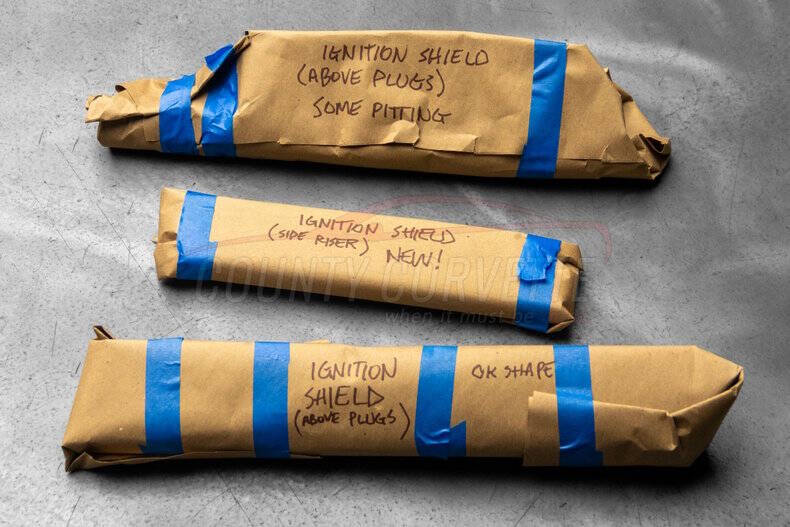 IGNITION SHIELD
(ABOVE PLUGS)
SOME PITTING
IGNITION SHIELD
(SIDE RISER) NEW!
COUNTY CORVETTE
when it must be
IGNITION
SHIELD
(ABOVE PLUGS)
OK SHAPE